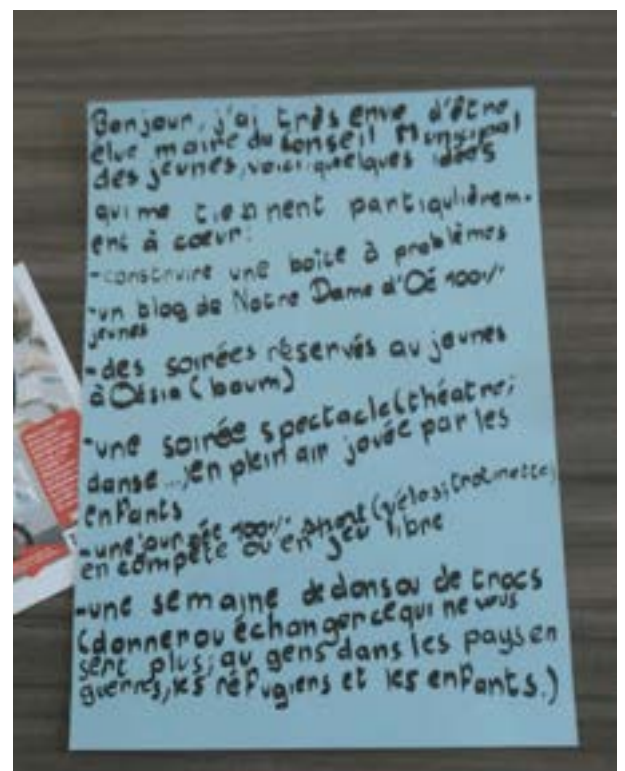 Bonjour, j'ai très envie d'être
élue maire du conseil Municipal
des jeunes, voici quelques idées
qui me tiennent partiqulièrem-
ent à coeur:
-construire une boîte à problèmes
-un blog de Notre Dame d'Oé 100%
jeunes
-des soirées réservés au jeunes
à Oésia (boum)
-une soirée spectacle (théatre,
danse...) en plein air jouée par les
enfants
-une journée 100% sport (vélos, trotinette)
en compète ou en jeu libre
-une semaine de dons ou de trocs
(donner ou échanger ce qui ne vous
sert plus, au gens dans les pays en
guerres, les réfugiers et les enfants.)